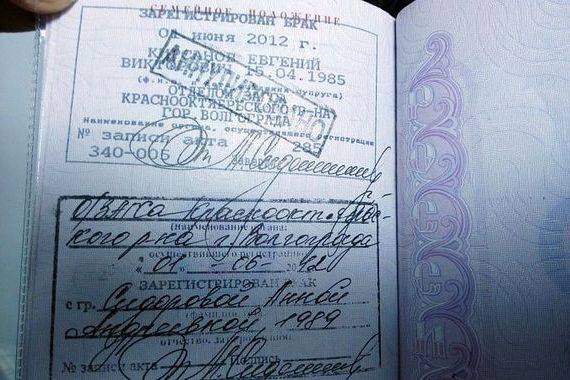 СЕМЕЙНОЕ ПОЛОЖЕНИЕ
ЗАРЕГИСТРИРОВАН БРАК
01 июня 2012 г.
ЕВГЕНИЙ
15.04.1985
ОТДЕЛОМ
КРАСНООКТЯБРЬСКОГО Р-НА
ГОР. ВОЛГОГРАДА
Наименование органа, осуществившего регистрацию
№ записи акта 285
340-006
ОЗАГСа Краснооктябрьс-
кого р-на г. Волгограда
(наименование органа,
осуществившего регистрацию)
"01" - 06 - 2012
ЗАРЕГИСТРИРОВАН БРАК
с гр. Сидоровой Анной
Андреевной, 1989
отчество, дата рождения)
№ записи акта Подпись